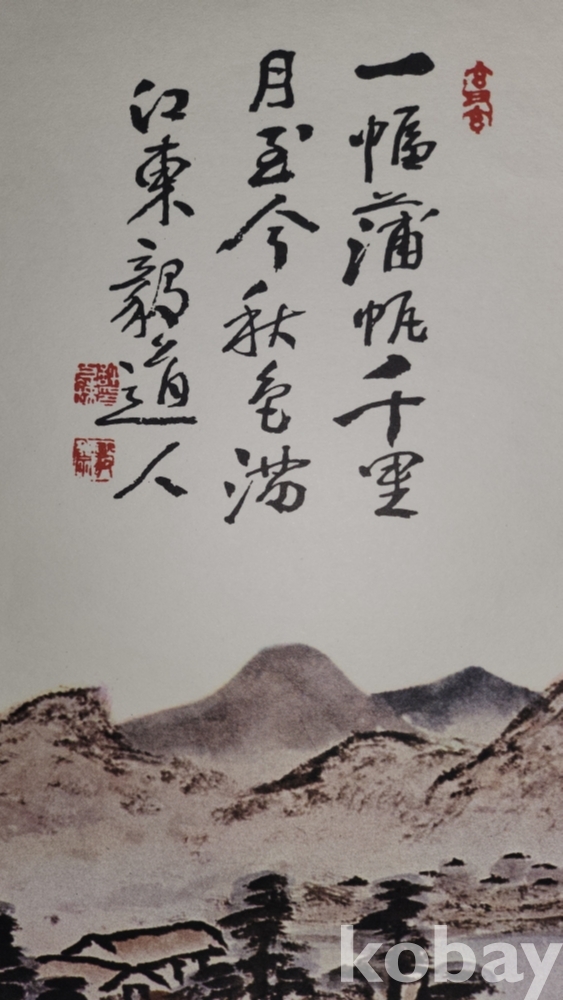 一幅蒲帆千里
月至今秋色滿
江東毅道人
kobay